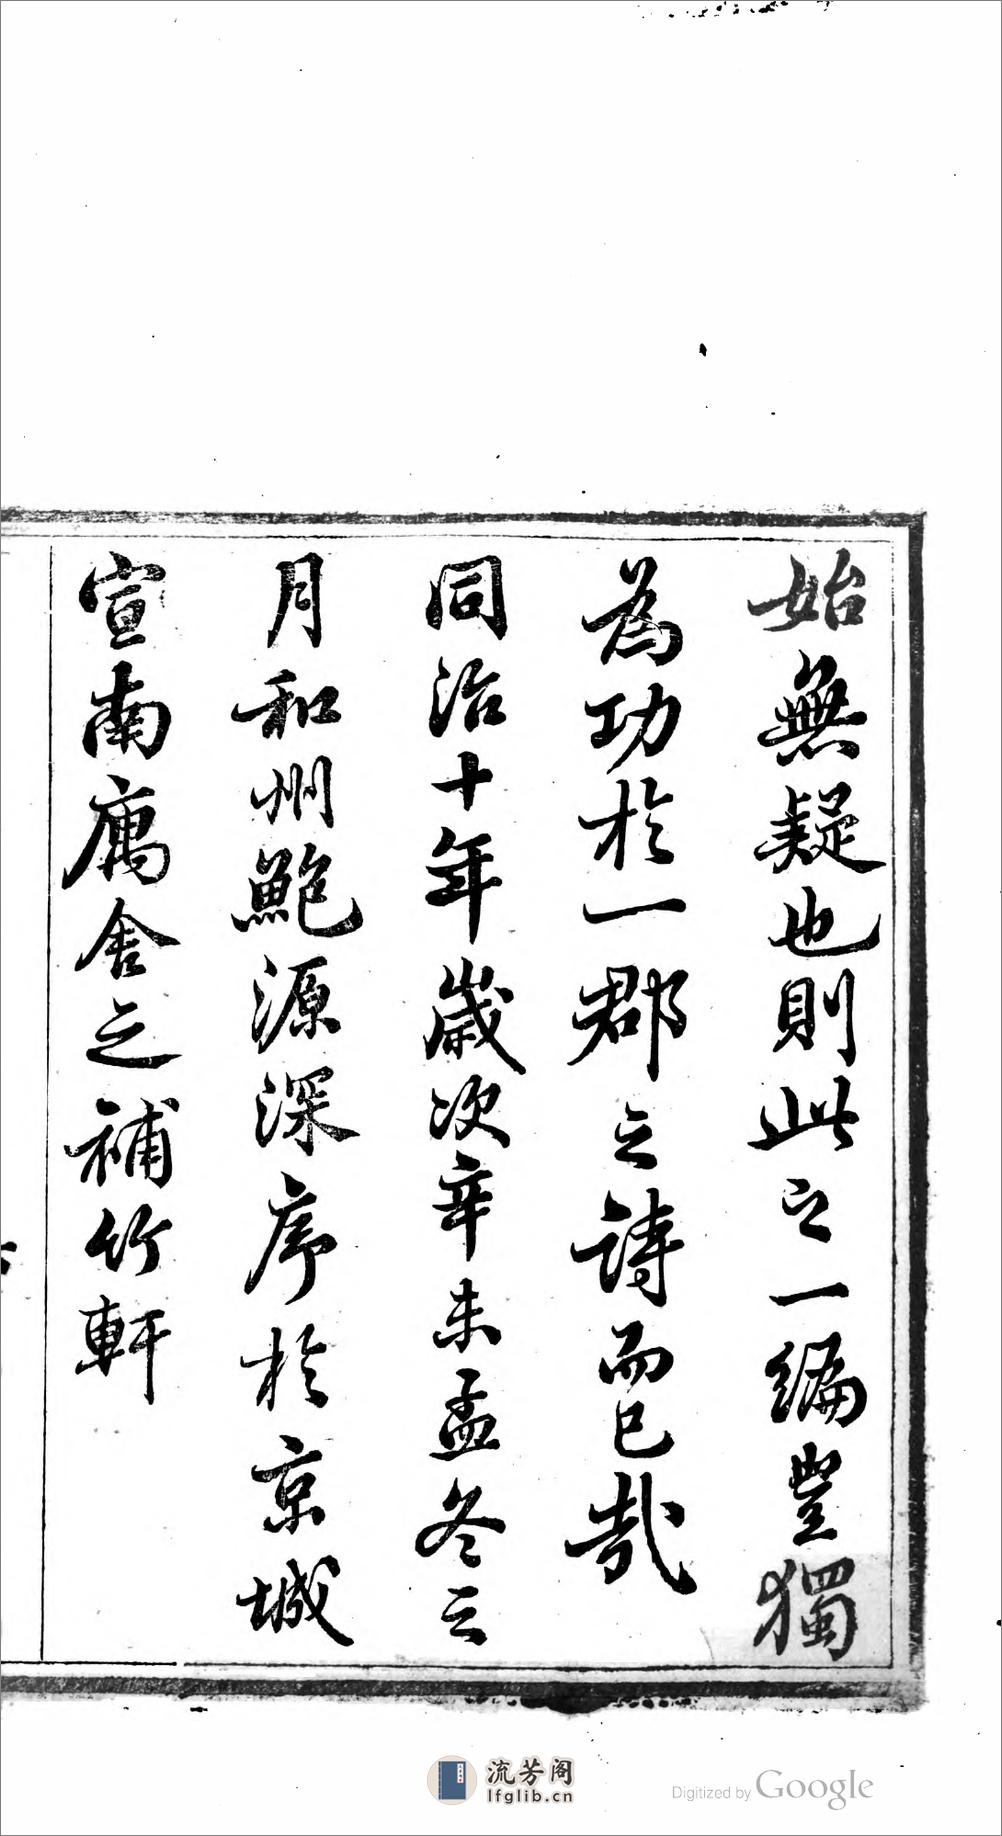 始無疑也則此之一編豈獨
為功於一郡之詩而已哉
同治十年歲次辛未孟冬之
月和州鮑源深序於京城
宣南寓舍之補竹軒
流芳阁
lfglib.cn
Digitized by Google